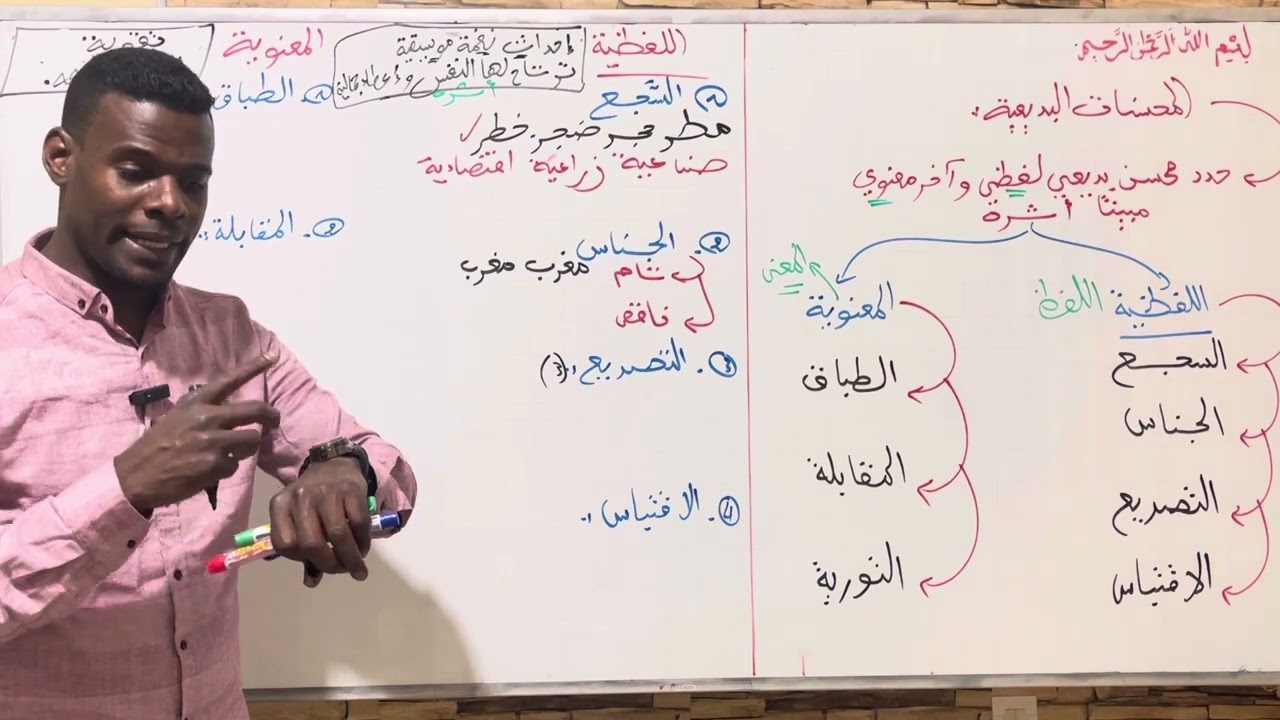 بسم الله الرحمن الرحيم
المحسنات البديعية.
حدد محسن بديعي لفظي وآخر معنوي
مبينًا أثره
اللفظية
اللفظ
السجع
الجناس
التصريع
الاقتباس
المعنوية
المعنى
الطباق
المقابلة
التورية
اللفظية
إحداث نغمة موسيقية
ترتاح لها النفس وإعطاء جمالية
أثره
① السَّجع
مطر ضجر خطر ✓
صناعية زراعية اقتصادية
②. الجناس
تام مغرب مغرب
ناقص
③. التصريع
④. الاقتباس
المعنوية
تقوية
① الطباق
②. المقابلة